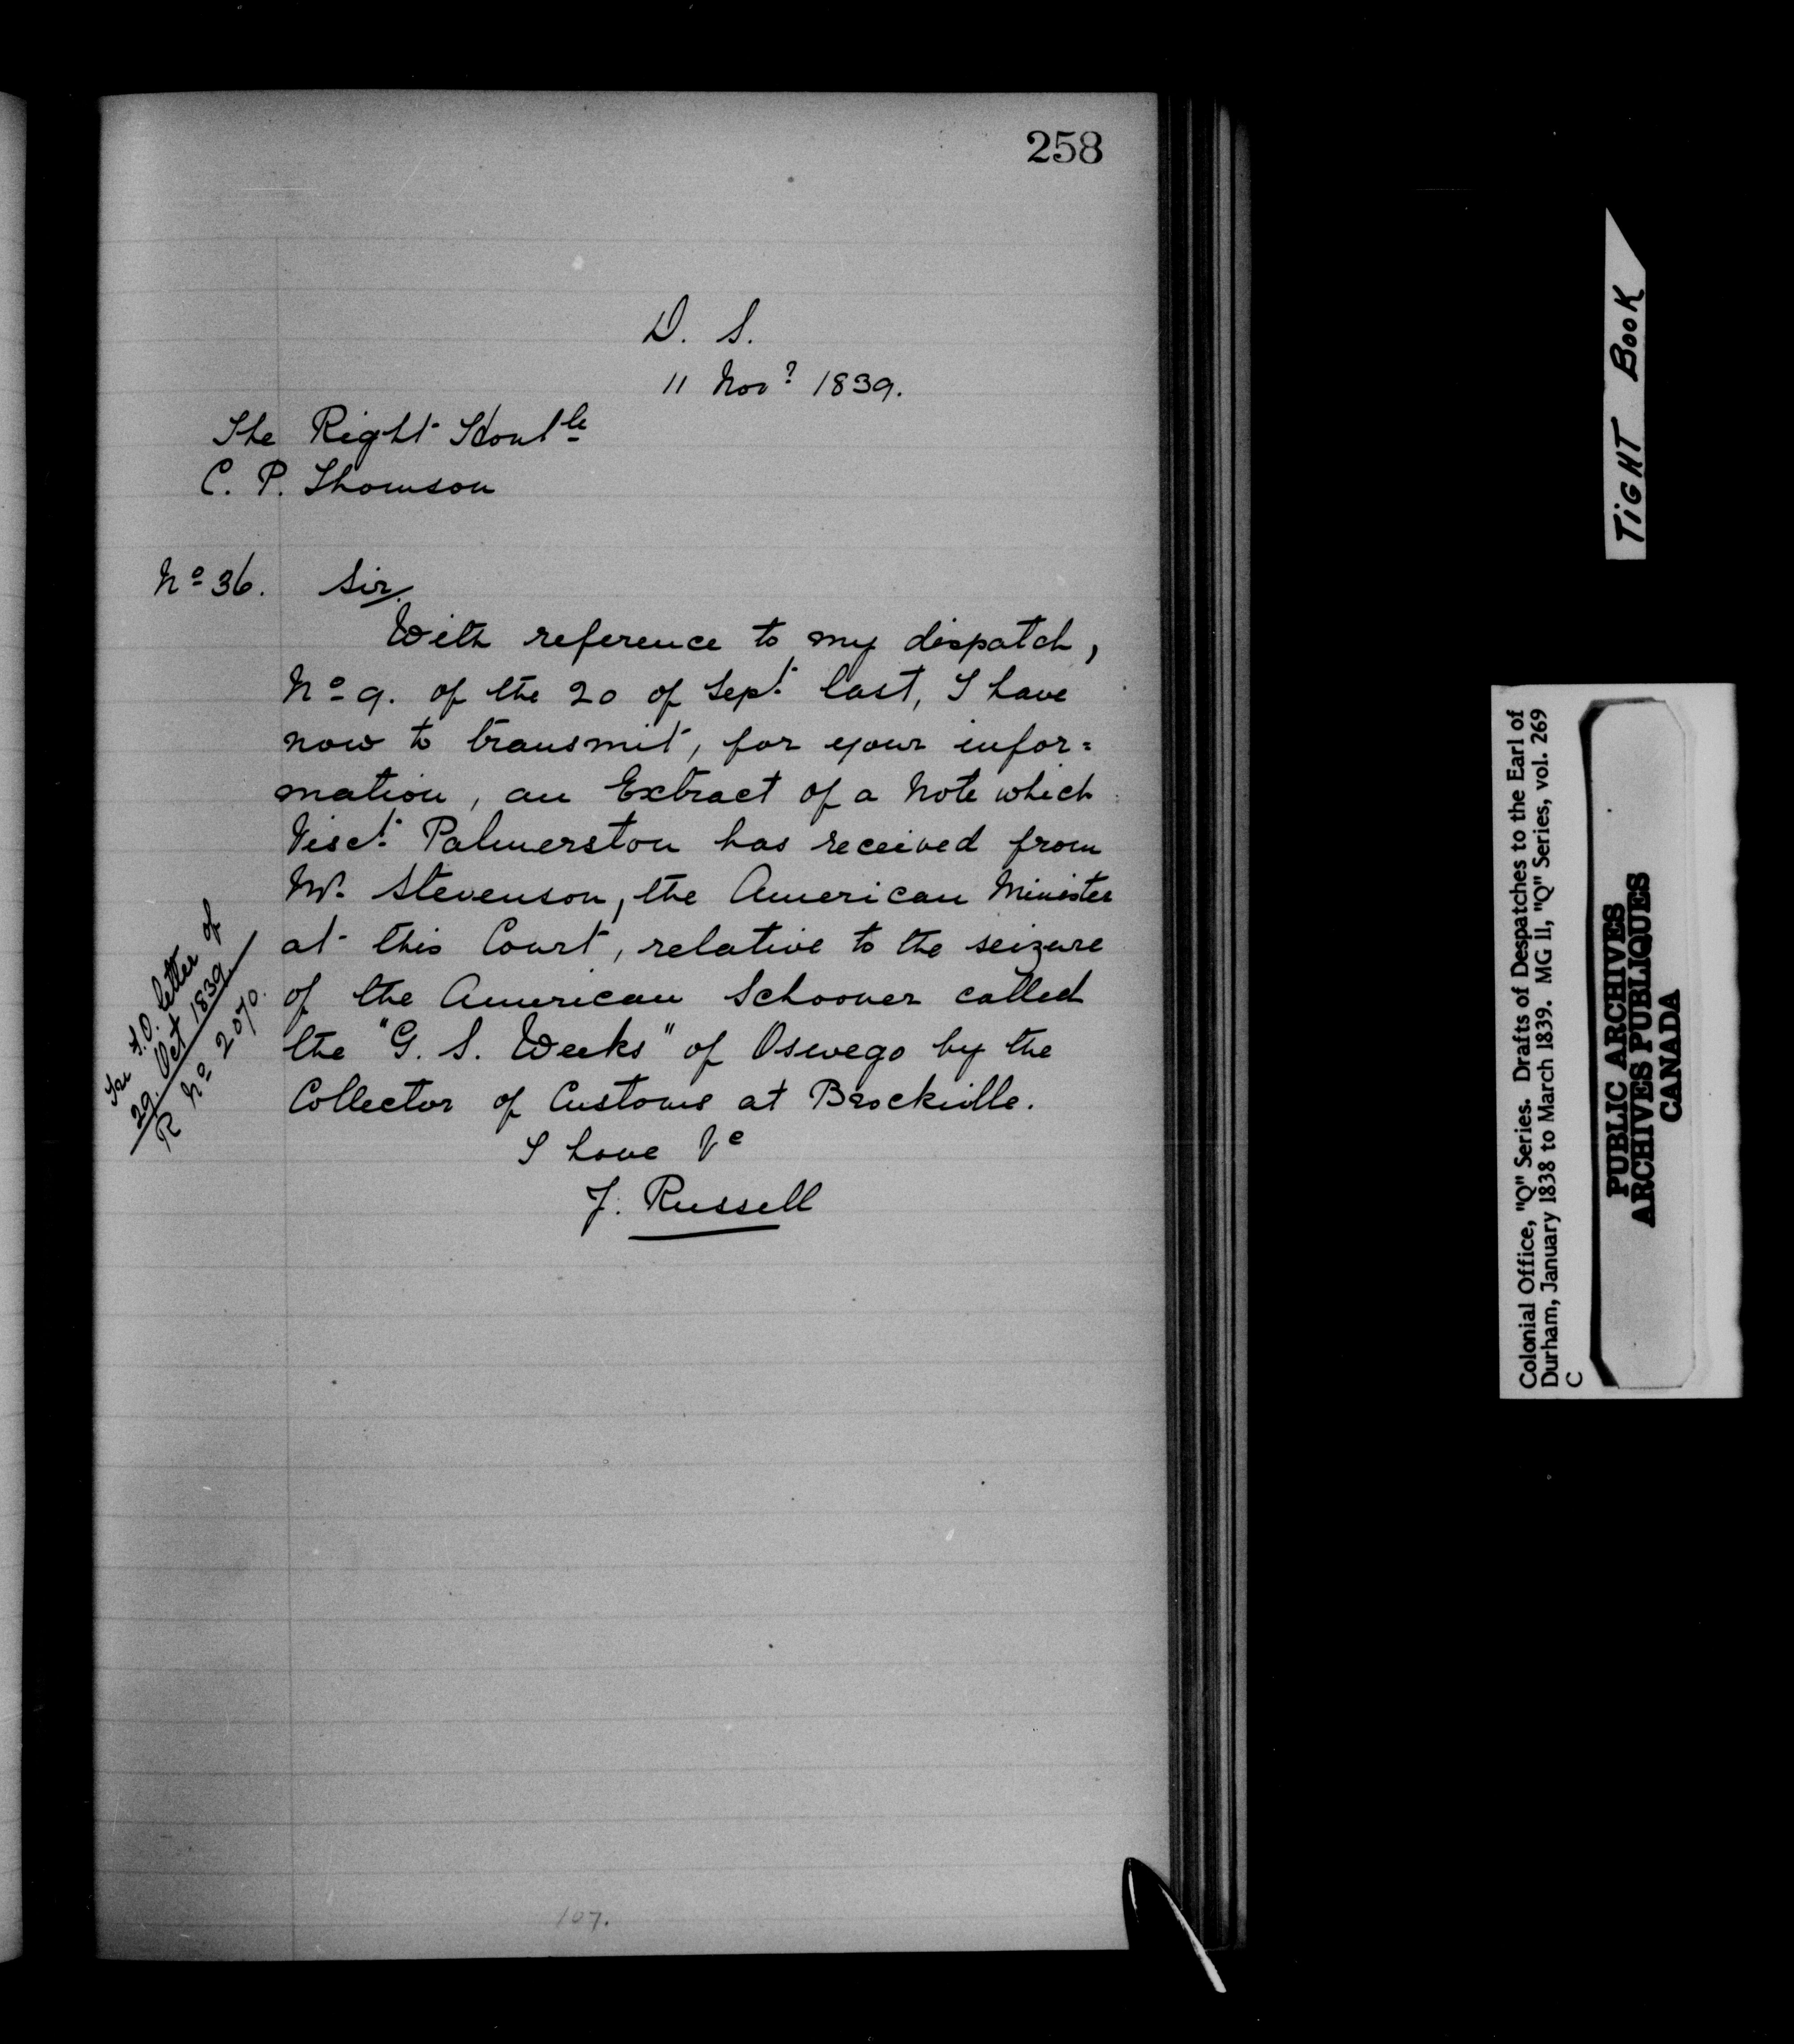 258
D. S.
11 Novr 1839.
The Right Honble
C. P. Thomson
No 36. Sir,
With reference to my dispatch,
No 9. of the 20 of Sept. last, I have
now to transmit, for your infor=
mation, an Extract of a Note which
Visct. Palmerston has received from
Mr. Stevenson, the American Minister
at this Court, relative to the seizure
of the American Schooner called
the "G. S. Weeks" of Oswego by the
Collector of Customs at Brockville.
I have &c
J. Russell
See F.O. letter of
29 Oct 1839
R No 2070.
107.
TIGHT BOOK
Colonial Office, "Q" Series. Drafts of Despatches to the Earl of
Durham, January 1838 to March 1839. MG 11, "Q" Series, vol. 269
C
PUBLIC ARCHIVES
ARCHIVES PUBLIQUES
CANADA